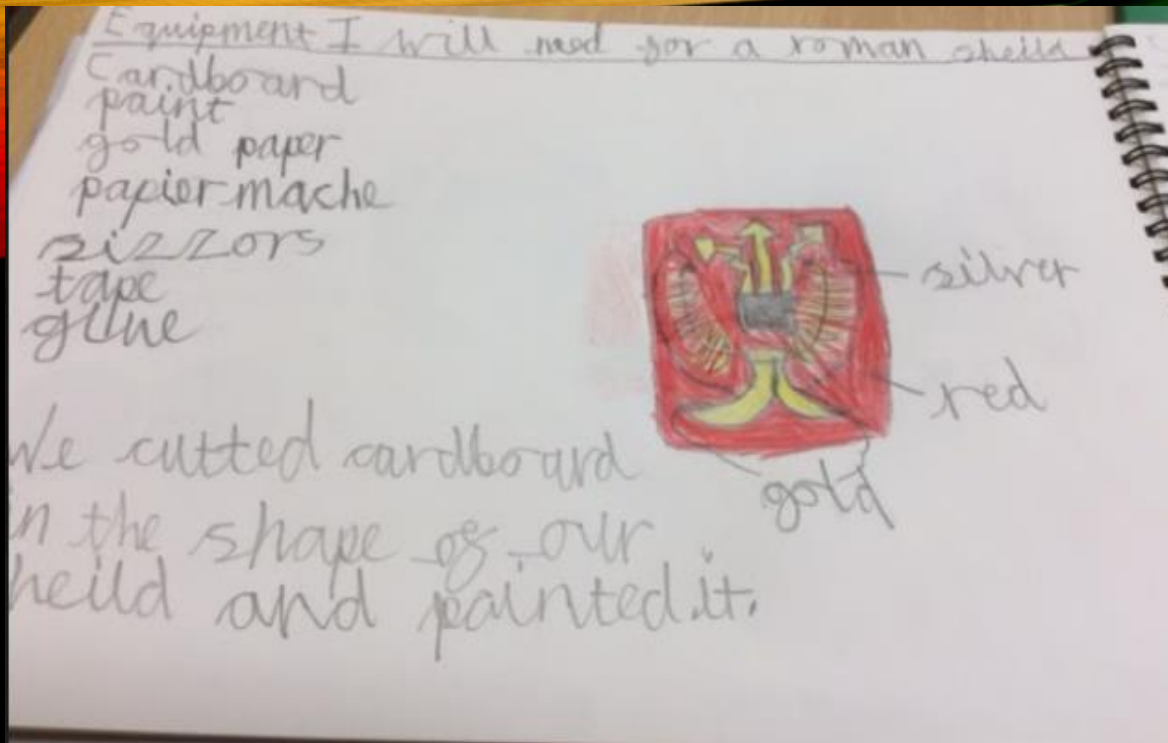 Equipment I will need for a roman sheild
Cardboard
paint
gold paper
papier mache
sizzors
tape
glue
silver
red
gold
We cutted cardboard
in the shape of our
heild and painted.it.